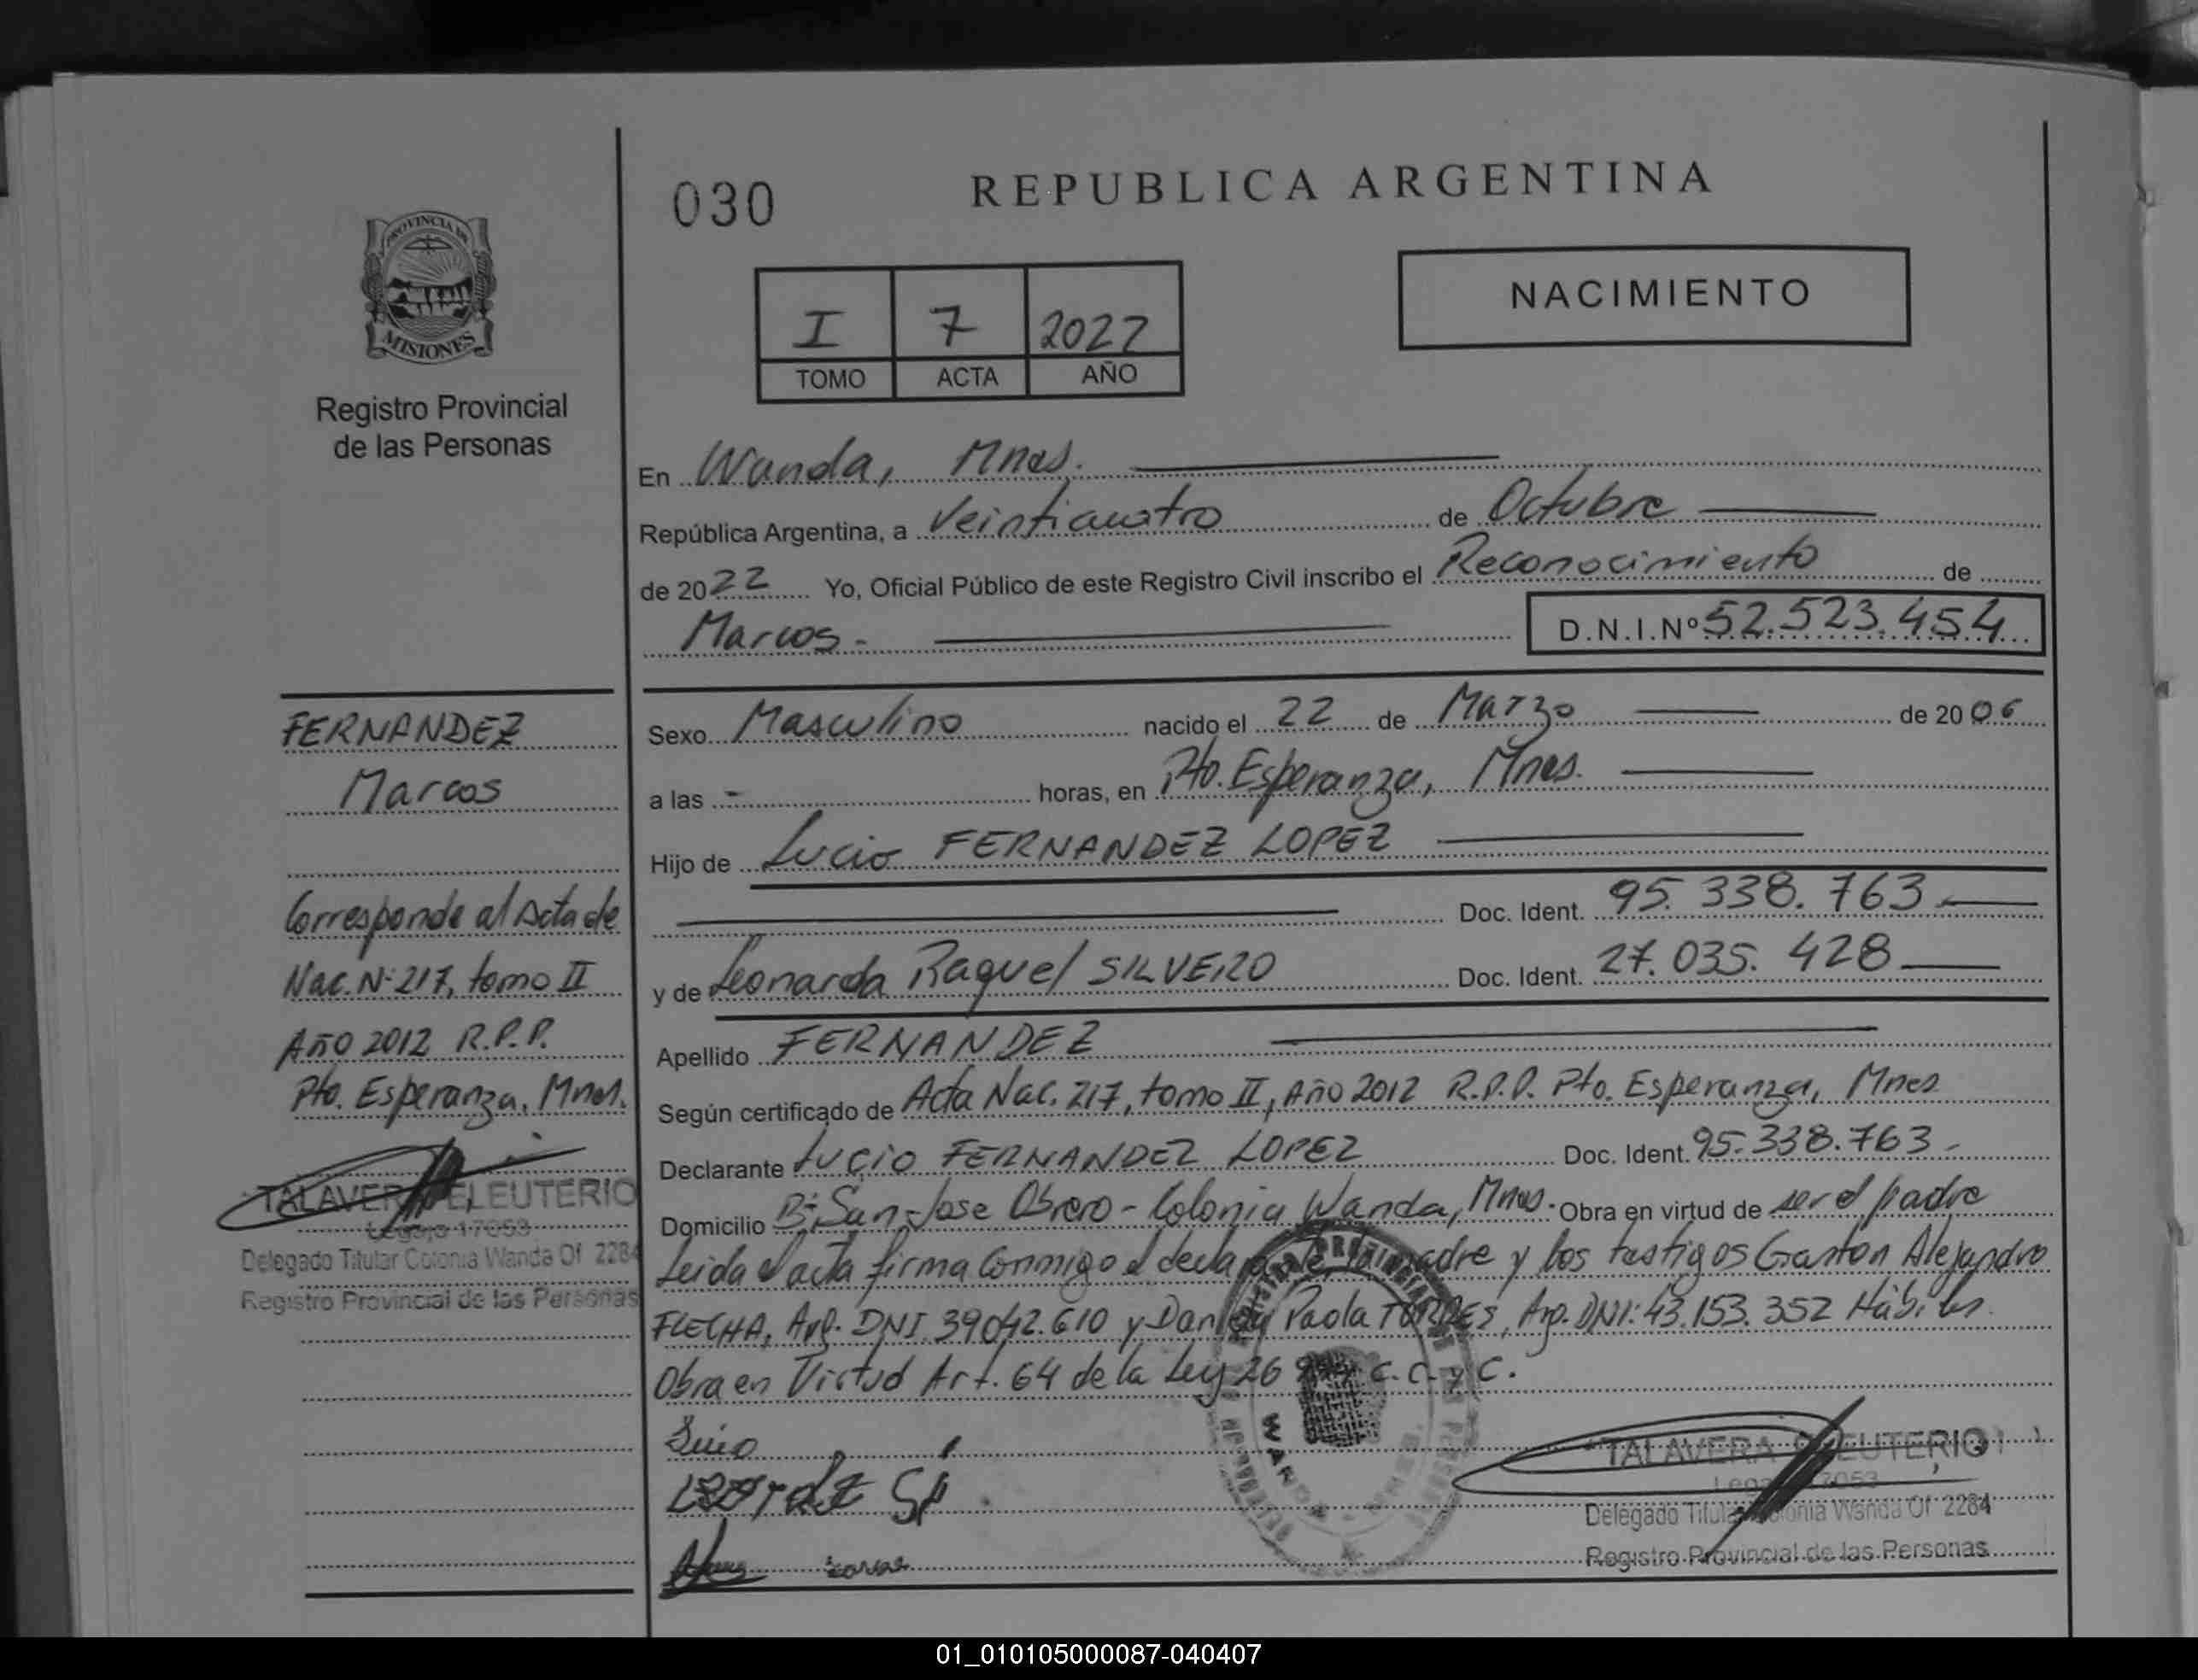 030
REPUBLICA ARGENTINA
PROVINCIA DE
MISIONES
Registro Provincial
de las Personas
NACIMIENTO
I 7 2022
TOMO ACTA AÑO
En Wanda, Mnes.
República Argentina, a Veinticuatro de Octubre
de 2022 Yo, Oficial Público de este Registro Civil inscribo el Reconocimiento de
Marcos.- D.N.I.Nº 52.523.454
FERNANDEZ
Marcos
Corresponde al Acta de
Nac. Nº 217, tomo II
Año 2012 R.P.P.
Pto. Esperanza, Mnes.
TALAVERA ELEUTERIO
Legajo 17053
Delegado Titular Colonia Wanda Of 2284
Registro Provincial de las Personas
Sexo Masculino nacido el 22 de Marzo de 2006
a las - horas, en Pto. Esperanza, Mnes.
Hijo de Lucio FERNANDEZ LOPEZ
Doc. Ident. 95.338.763
y de Leonarda Raquel SILVEIRO Doc. Ident. 27.035.428
Apellido FERNANDEZ
Según certificado de Acta Nac. 217, tomo II, Año 2012 R.P.P. Pto. Esperanza, Mnes
Declarante Lucio FERNANDEZ LOPEZ Doc. Ident. 95.338.763.-
Domicilio Bº San Jose Obrero - Colonia Wanda, Mnes. Obra en virtud de ser el padre
Leida el acta firma Conmigo el declarante, la madre y los testigos Gaston Alejandro
FLECHA, Arg. DNI 39.042.610 y Paola TORRES, Arg. DNI: 43.153.352 Hábiles.
Obra en Virtud Art. 64 de la Ley 26 C.C. y C.
Lucio
TALAVERA ELEUTERIO
Legajo 17053
Delegado Titular Colonia Wanda Of 2284
Registro Provincial de las Personas
WANDA
01_010105000087-040407